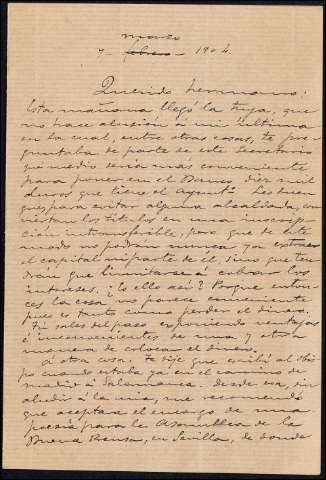 marzo
7 - febrero - 1904.
Querido hermano:
Esta mañana llegó la tuya, que
no hace alusión á mi última
en la cual, entre otras cosas, te pre
guntaba de parte de este Secretario
que medio sería más conveniente
para poner en el Banco diez mil
duros que tiene el Ayunt.º Les dicen
que, para evitar alguna alcaldada, con
viertan los títulos en una inscrip-
ción intransferible, pero que de este
modo no podrán nunca ya extraer
el capital ni parte de él, sino que ten
drán que limitarse á cobrar los
intereses. ¿Es ello así? Porque enton-
ces la cosa no parece conveniente
pues es tanto como perder el dinero.
Tú sales del paso exponiendo ventajas
é inconvenientes de una y otra
manera de colocar el dinero.
A otra cosa: Te dije que escribí al Obis
po cuando estaba ya en el camino de
Madrid á Salamanca. Desde esa, sin
aludir á la mía, me recomendó
que aceptara el encargo de una
poesía para la Asamblea de la
Buena Prensa, en Sevilla, de donde